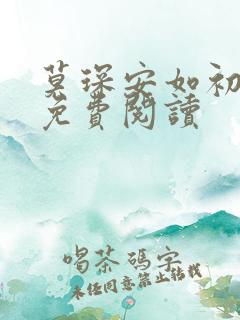 慕琛安如初
免費閱讀
喝茶碼字
未經同意禁止轉載